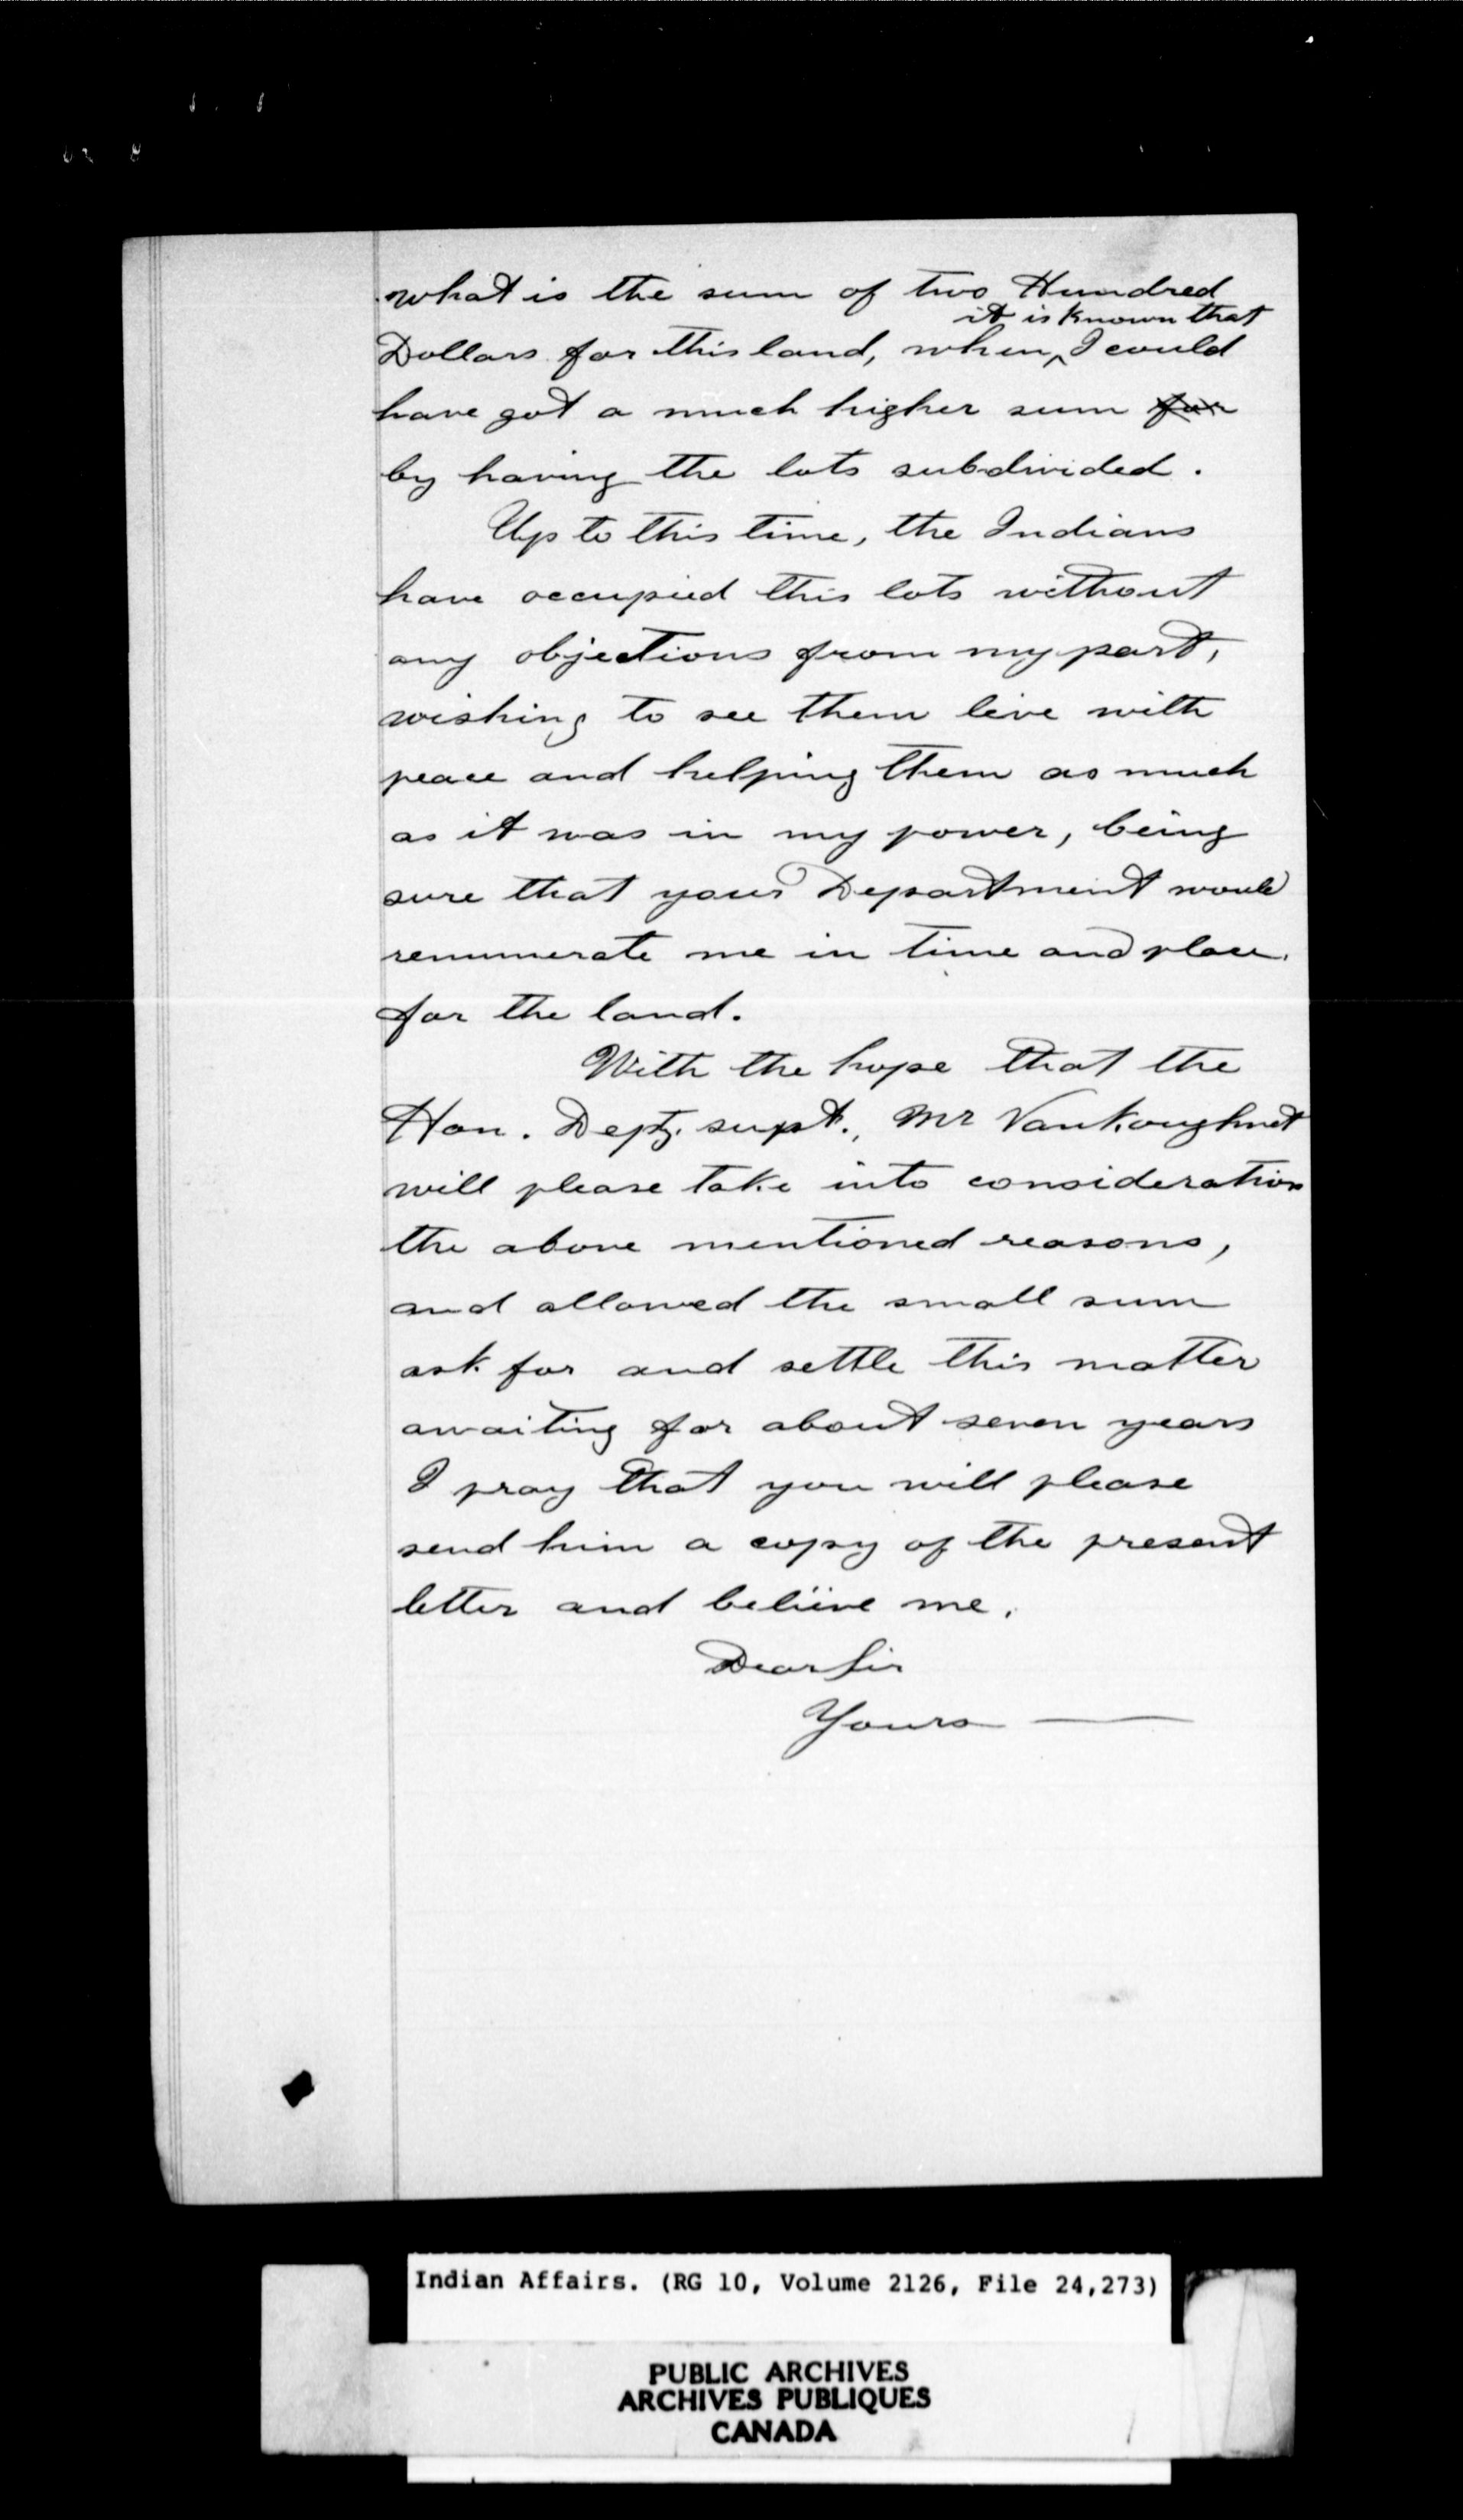 what is the sum of two Hundred
it is known that
Dollars for this land, when ^ I could
have got a much higher sum for
by having the lots subdivided.
Up to this time, the Indians
have occupied this lots without
any objections from my part,
wishing to see them live with
peace and helping them as much
as it was in my power, being
sure that your Department would
renumerate me in time and place.
for the land.
With the hope that the
Hon. Depty. supt., Mr Vankoughnet
will please take into consideration
the above mentioned reasons,
and allowed the small sum
ask for and settle this matter
awaiting for about seven years
I pray that you will please
send him a copy of the present
letter and beliive me,
Dear Sir
Yours —
Indian Affairs. (RG 10, Volume 2126, File 24,273)
PUBLIC ARCHIVES
ARCHIVES PUBLIQUES
CANADA